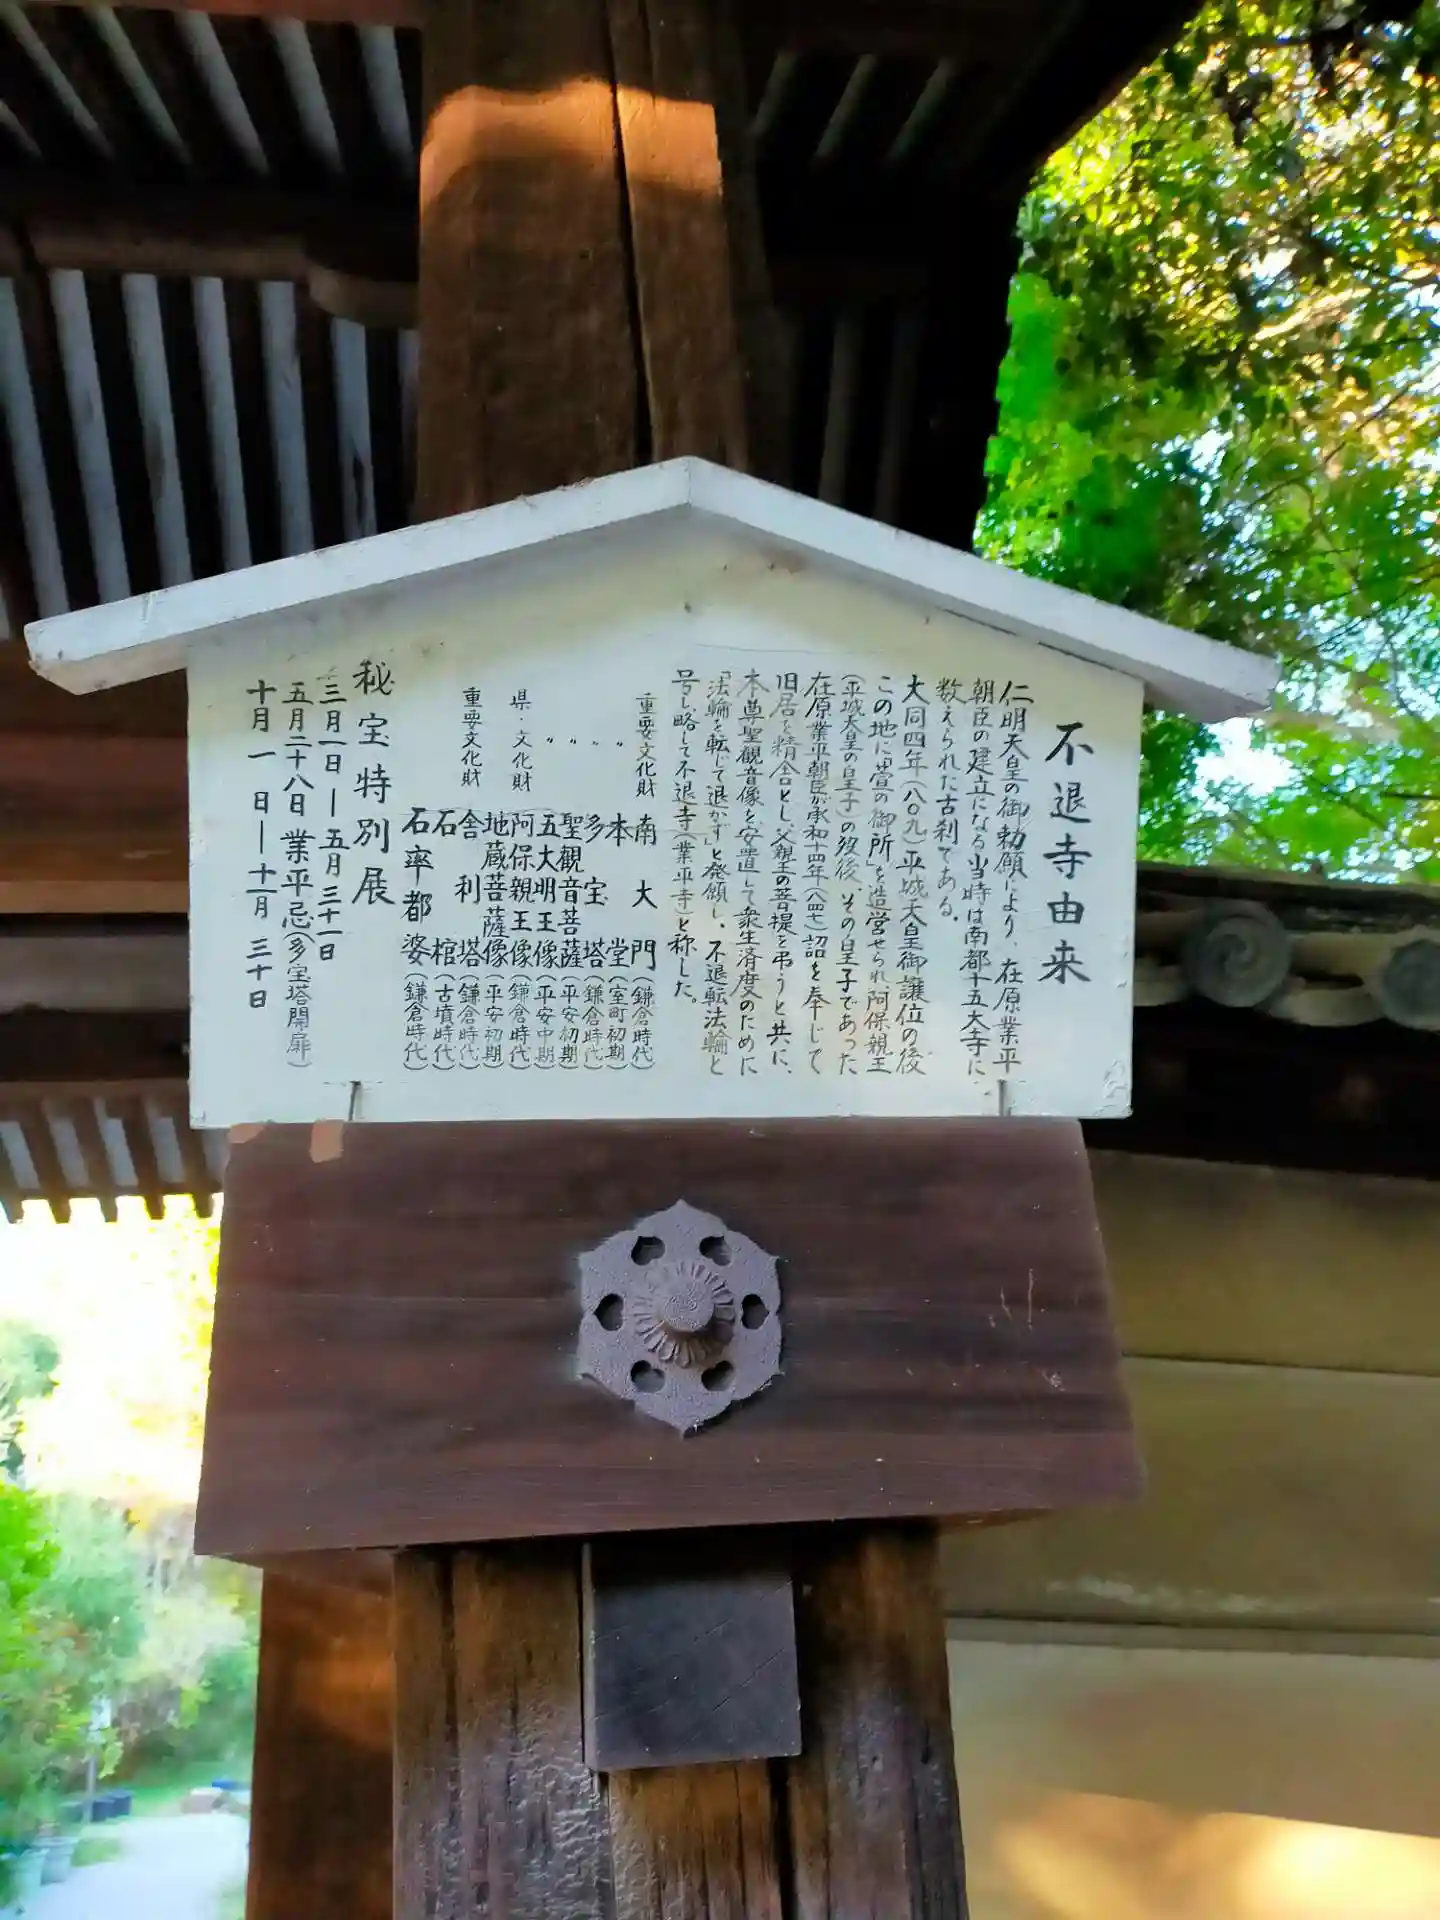 不退寺由来
仁明天皇の御勅願により、在原業平
朝臣の建立になる当時は南都十五大寺に
数えられた古刹である。
大同四年(八〇九)平城天皇御譲位の後
この地に「萱の御所」を造営せられ、阿保親王
(平城天皇の皇子)の歿後、その皇子であった
在原業平朝臣が承和十四年(八四七)詔を奉じて
旧居を精舎とし、父親王の菩提を弔うと共に、
本尊聖観音像を安置して衆生済度のために
「法輪を転じて退かず」と発願し、不退転法輪と
号し略して不退寺(業平寺)と称した。
重要文化財 南大門(鎌倉時代)
〃 本堂(室町初期)
〃 多宝塔(鎌倉時代)
〃 聖観音菩薩(平安初期)
〃 五大明王像(平安中期)
県・文化財 阿保親王像(鎌倉時代)
地蔵菩薩像(平安初期)
重要文化財 舎利塔(鎌倉時代)
石棺(古墳時代)
石率都婆(鎌倉時代)
秘宝特別展
三月一日―五月三十一日
五月二十八日業平忌(多宝塔開扉)
十月一日―十一月三十日